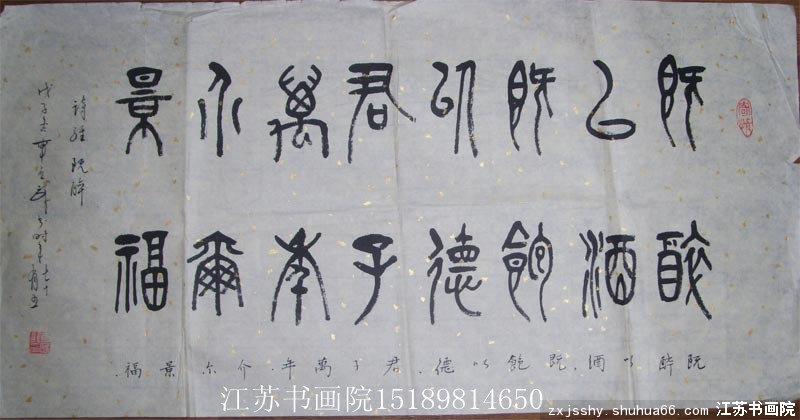 既醉
以酒
既飽
以德
君子
萬年
介爾
景福
詩經 既醉
既醉以酒.既飽以德.君子萬年.介尔景福.
江苏书画院15189814650
zxjsshy.shuhua66.com 江苏书画院